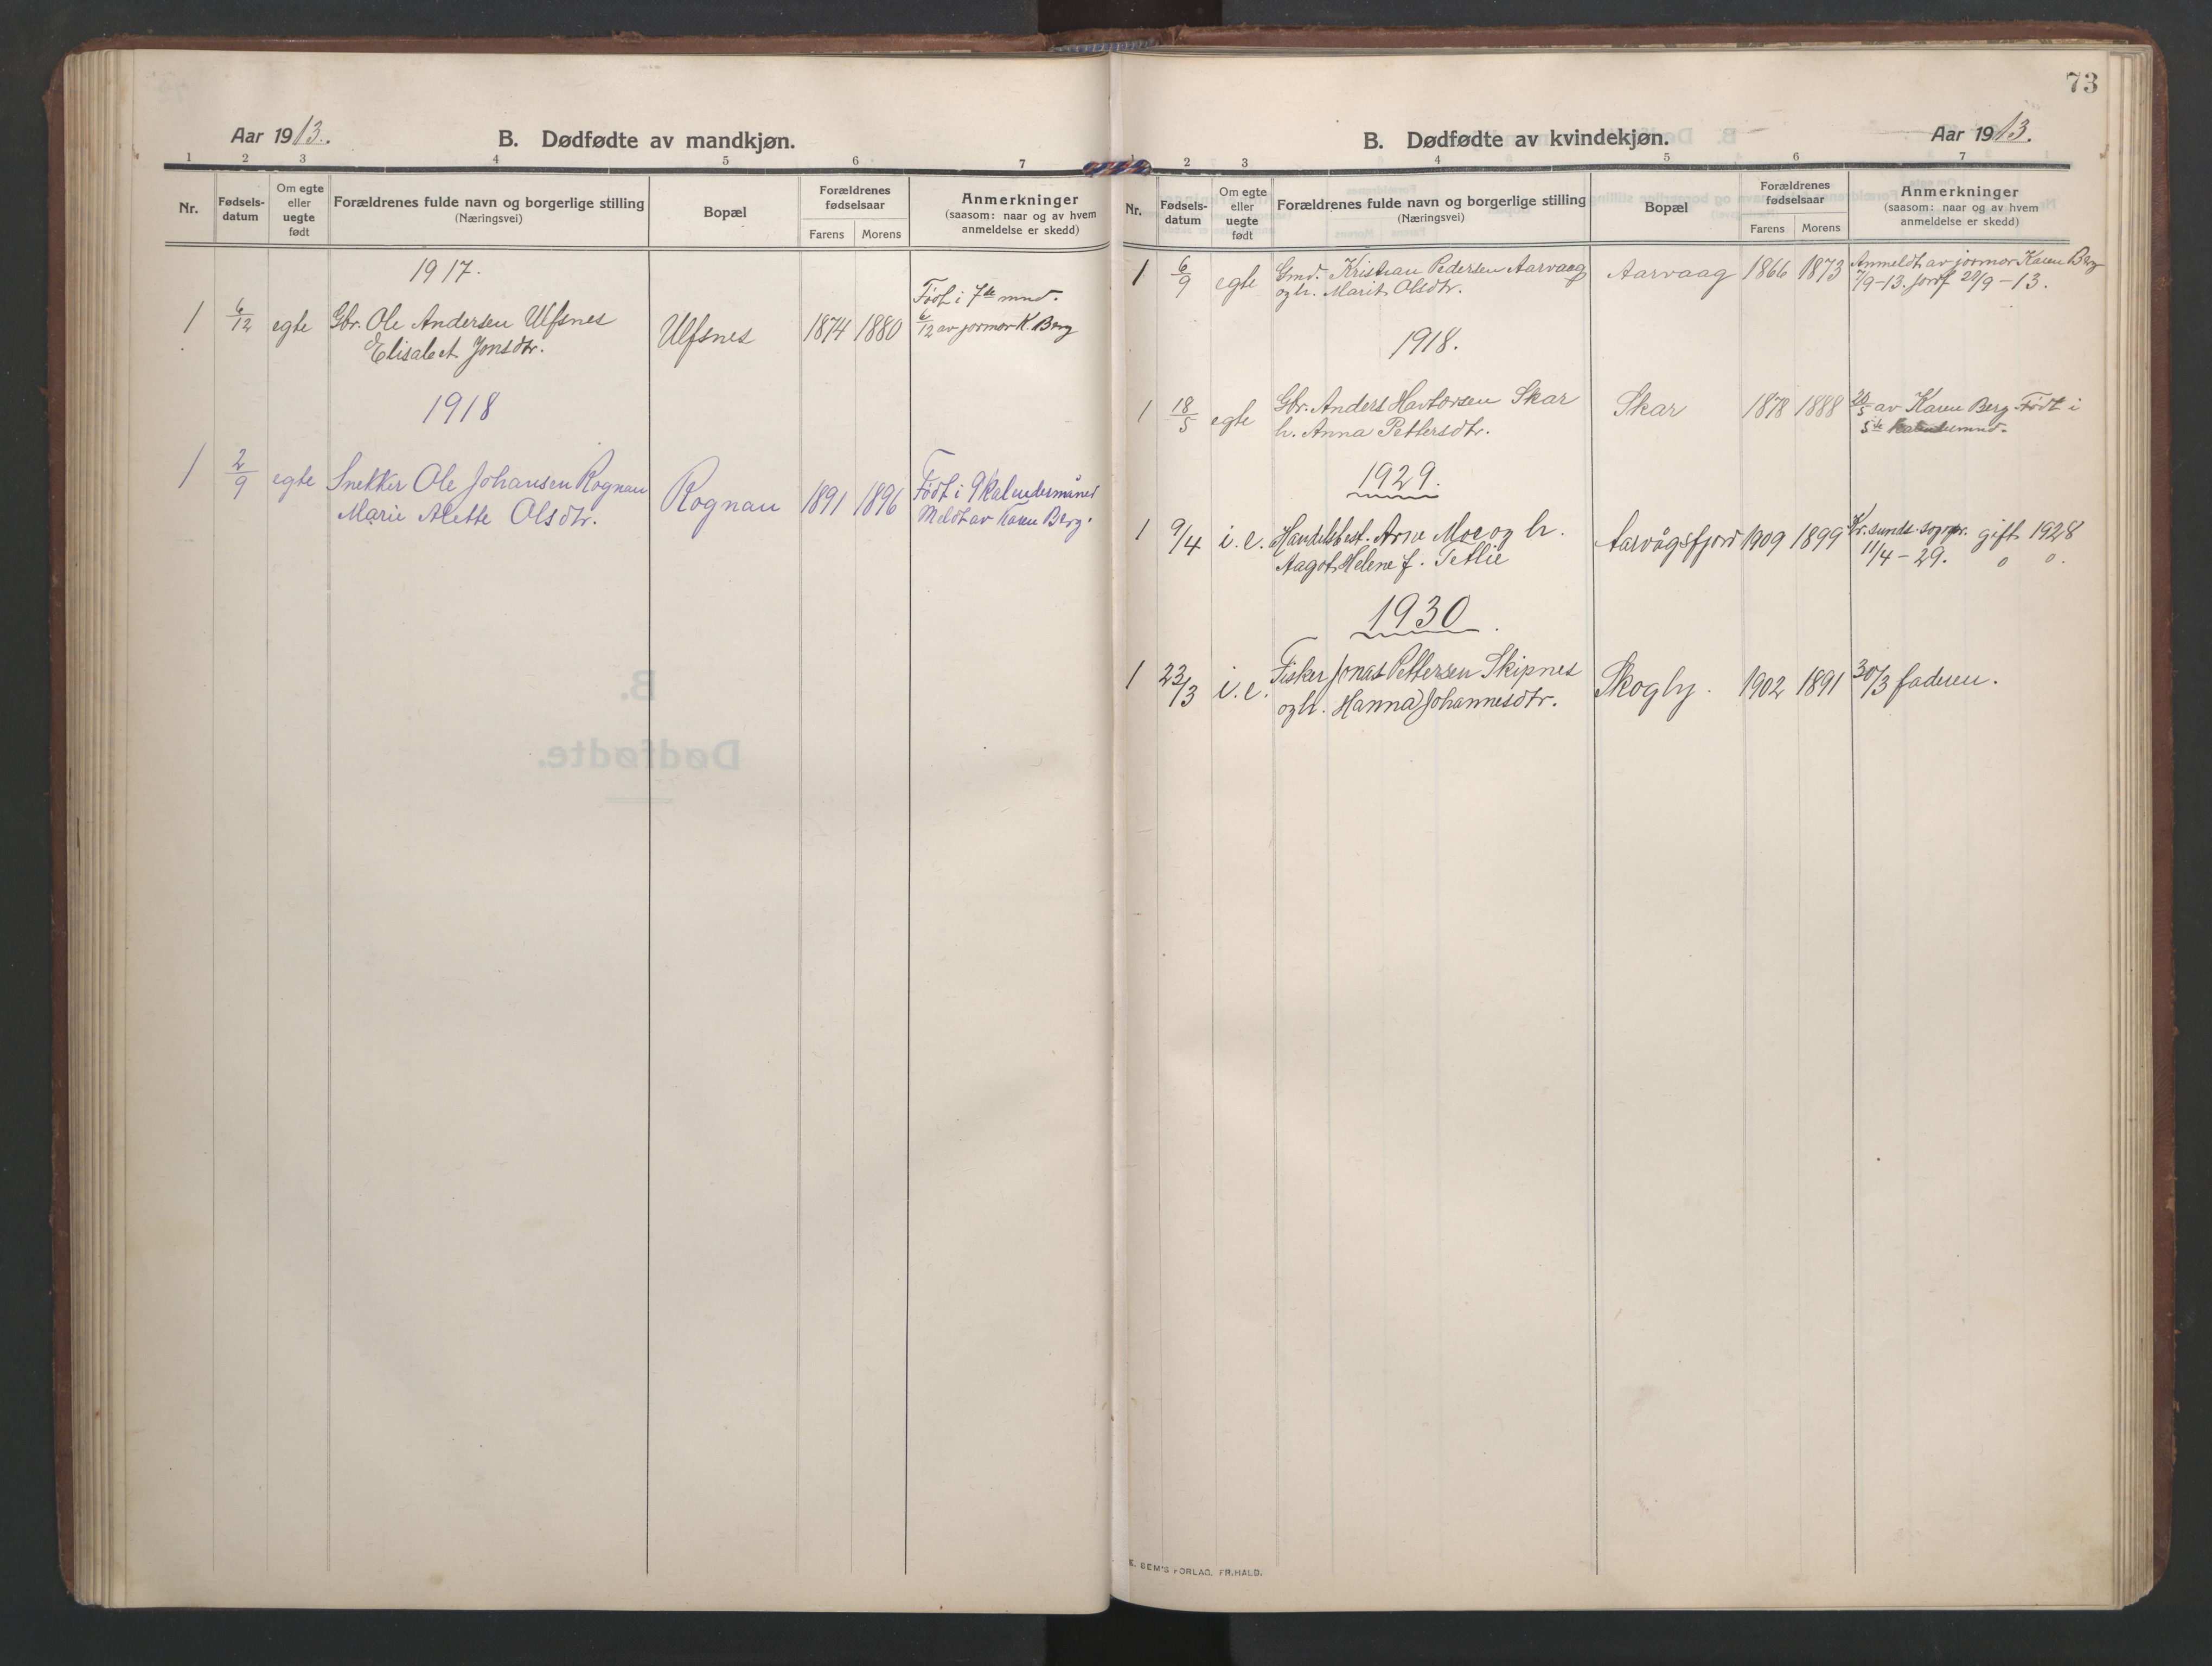 Aar 1913.
B. Dødfødte av mandkjøn.
1 2 3 4 5 6 7
Nr.
Fødsels-
datum
Om egte
eller
uegte
født
Forældrenes fulde navn og borgerlige stilling
(Næringsvei)
Bopæl
Forældrenes
fødselsaar
Farens Morens
Anmerkninger
(saasom: naar og av hvem
anmeldelse er skedd)
1917.
1 6/12 egte Gbr. Ole Andersen Ulfsnes
Elisabet Jonsdtr.
Ulfsnes 1874 1880
Født i 7de mnd.
6/12 av jormor K. Berg
1918
1 2/9 egte Snekker Ole Johansen Rognau
Marie Alette Olsdtr.
Rognau 1891 1896
Født i 9 kalendermåned
Meldt av Karen Berg.
B.
Dødfødte.
73
B. Dødfødte av kvindekjøn.
Aar 1913.
1 2 3 4 5 6 7
Nr.
Fødsels-
datum
Om egte
eller
uegte
født
Forældrenes fulde navn og borgerlige stilling
(Næringsvei)
Bopæl
Forældrenes
fødselsaar
Farens Morens
Anmerkninger
(saasom: naar og av hvem
anmeldelse er skedd)
1 6/9 egte Gmd. Kristian Pedersen Aarvaag
og h. Marit Olsdtr.
Aarvaag 1866 1873
Anmeldt av jormor Karen Berg
7/9-13. jordf 22/9-13.
1918.
1 18/5 egte Gbr. Anders Havtorsen Skar
h. Anna Pettersdtr.
Skar 1878 1888
20/5 av Karen Berg. Født i
5te
1929.
1 9/4 i.e. Handelsbest. Arne Moe og h.
Aagot Helene f. Tetlie
Aarvågsfjord 1909 1899
Kr.sunds sogpr. gift 1928
11/4-29.
1930
1 23/3 i.e. Fisker Jonas Pettersen Skipnes
og h. Hanna Johannesdtr.
Skogly. 1902 1891 30/3 faderen.
E. SEM'S FORLAG. FR.HALD.